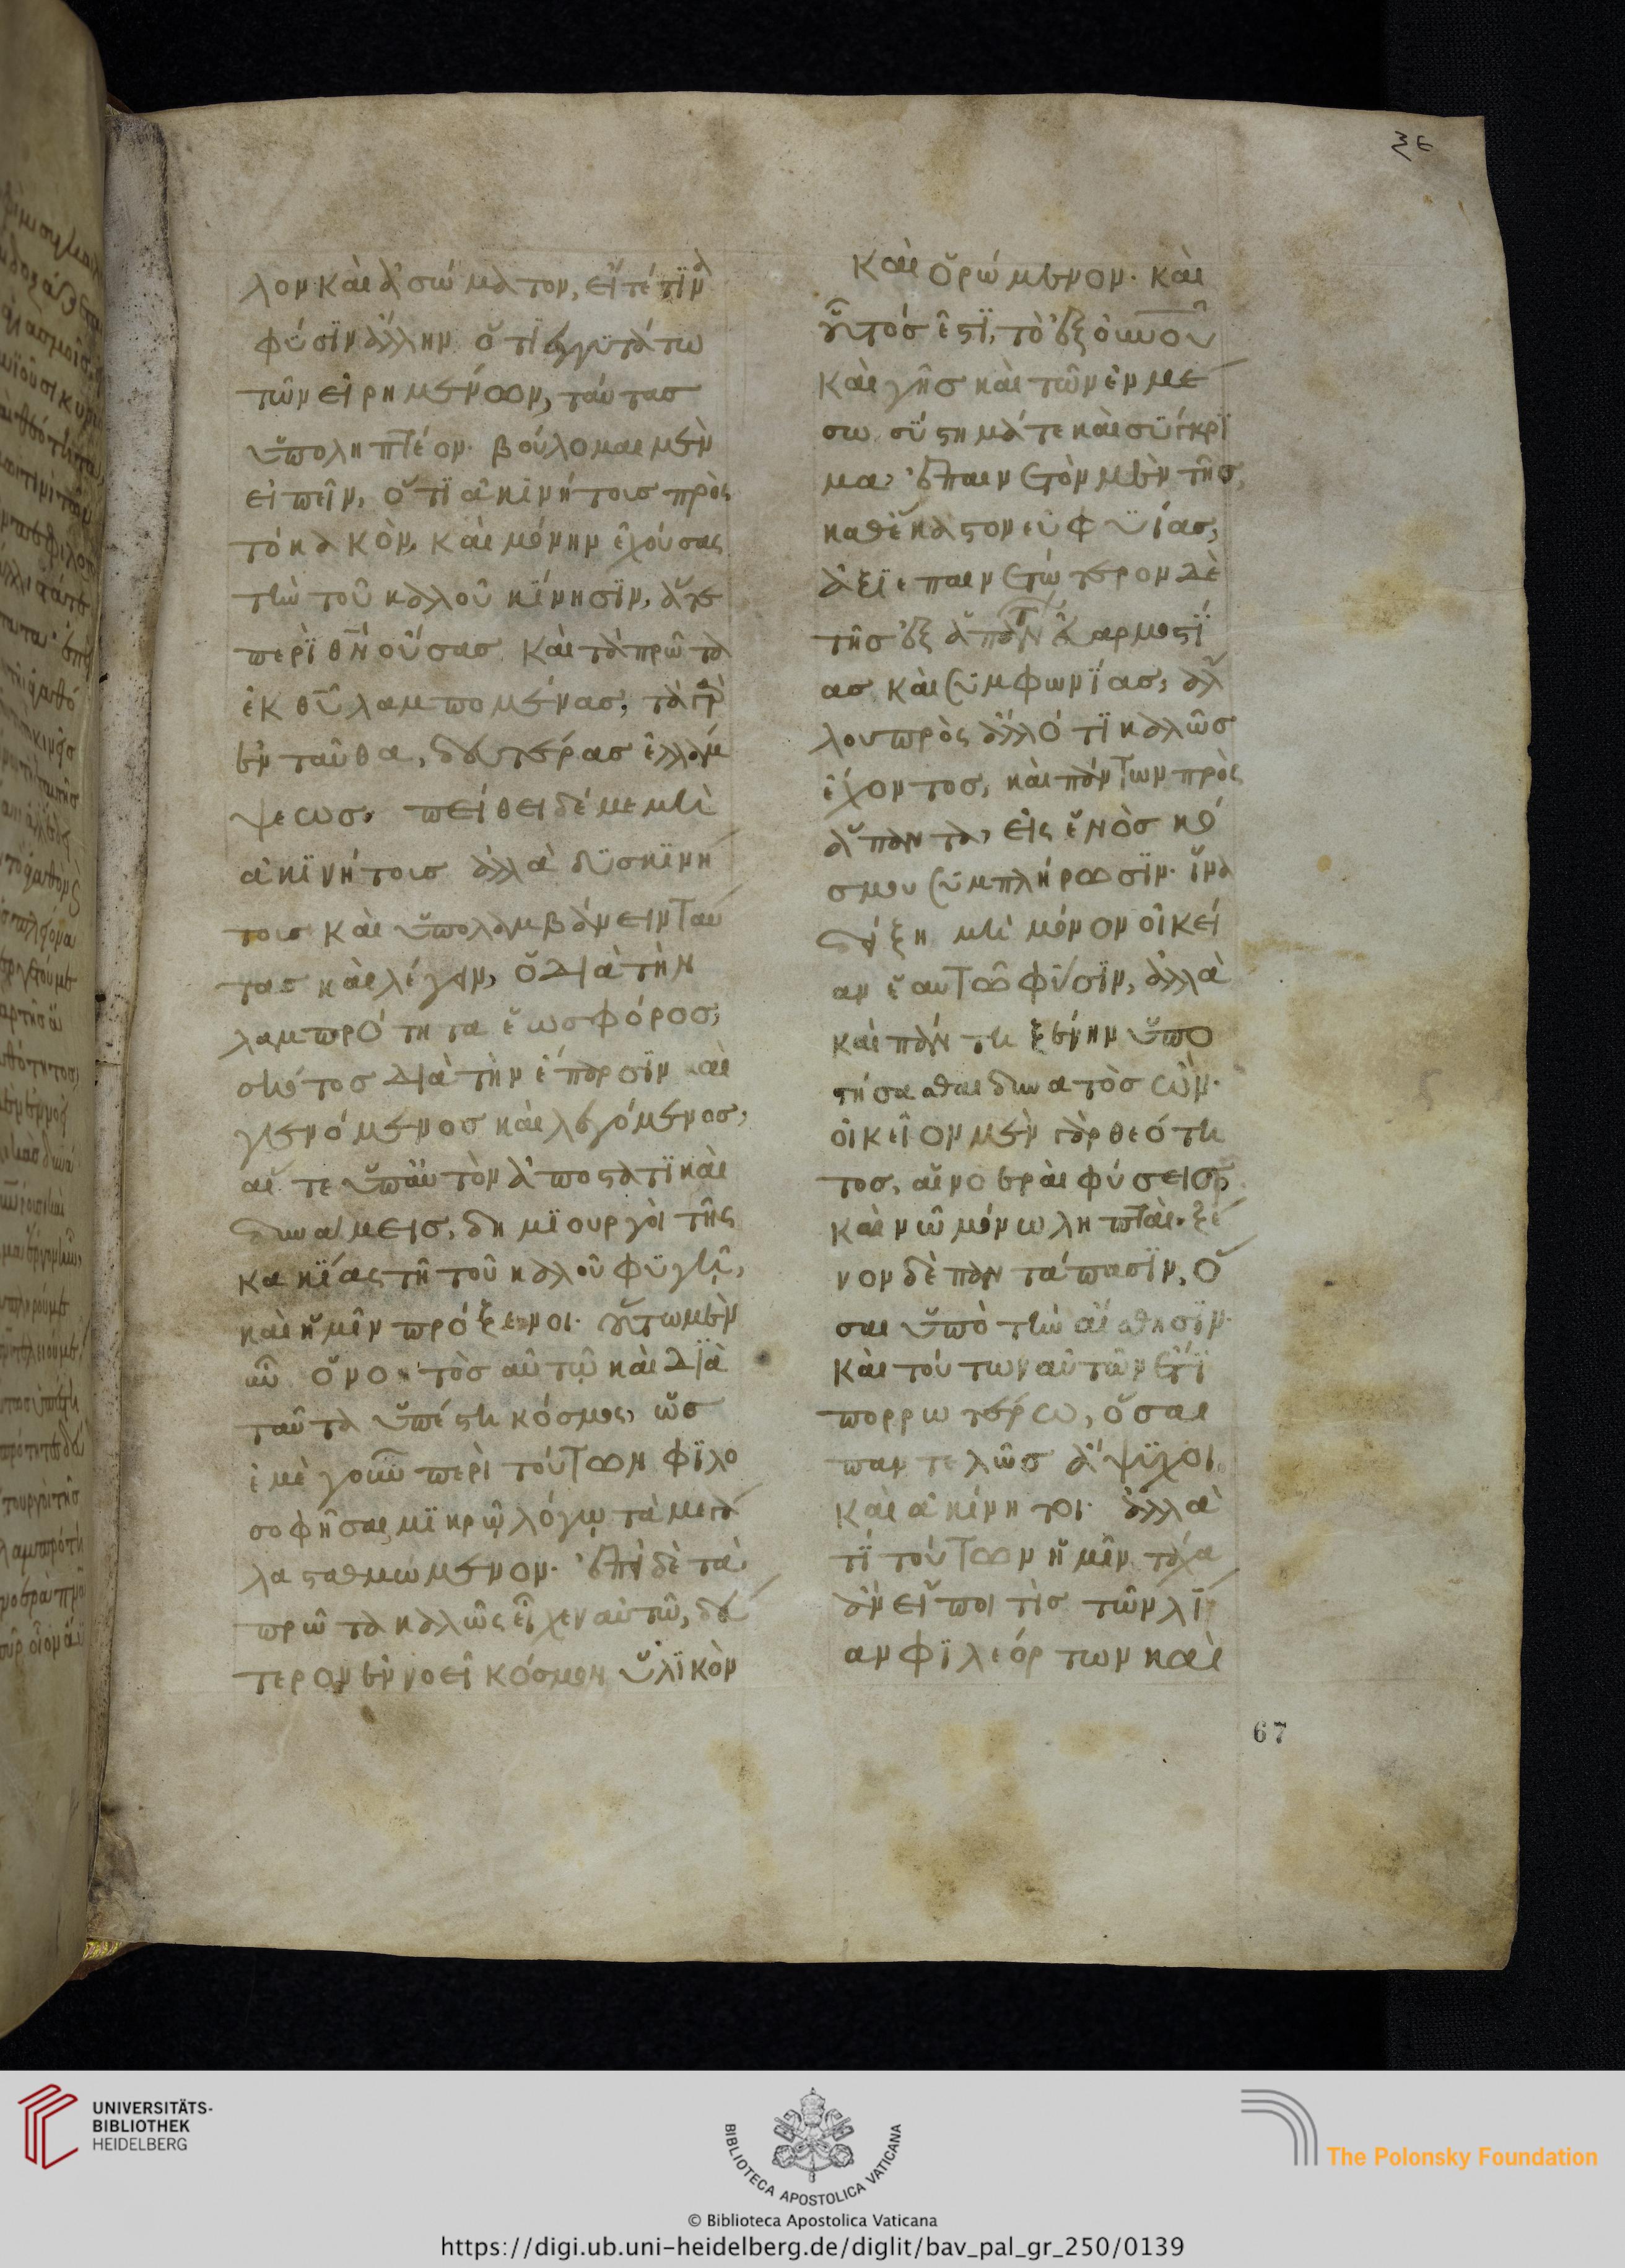 λον καὶ ἀσώματον, εἴτέ τϊνα
φύσϊν ἄλλην ὅτϊ ἐγγϋτάτω
τῶν εἰρημένων, ταύτας
ὑποληπτέον. βούλομαι μὲν
εἰπεῖν, ὅτϊ ἀκινήτους πρὸς
τὸ κακὸν, καὶ μόνην ἐχούσας
τὴν τοῦ καλοῦ κίνησϊν, ἅτε
περὶ θν οὔσας καὶ τὰ πρῶτα
ἐκ θυ λαμπομένας, τὰ γὰρ
ἐνταῦθα, δευτέρας ἐλλάμ
ψεως. πείθει δέ με μὴ
ἀκϊνήτους ἀλλὰ δϋσκϊνή
τους καὶ ὑπολαμβάνειν ταύ
τας καὶ λέγειν, ὁ διὰ τὴν
λαμπρότητα ἑωσφόρος,
σκότος διὰ τὴν ἔπαρσϊν καὶ
γενόμενος καὶ λεγόμενος,
αἵ τε ὑπ' αὐτὸν ἀποστατϊκαὶ
δυνάμεις, δημϊουργοὶ τῆς
κακίας τῆ τοῦ καλοῦ φϋγῆ,
καὶ ἡμῖν πρόξενοι. οὕτω μὲν
οὖν ὁ νοητὸς αὐτῷ καὶ διὰ
ταῦτα ὑπέστη κόσμος, ὡς
ἐμὲ γοῦν περὶ τούτων φϊλο
σοφῆσαι μϊκρῷ λόγῳ τὰ μεγά
λα σταθμώμενον. ἐπεὶ δὲ τὰ
πρῶτα καλῶς εἶχεν αὐτῶ, δεύ
τερον ἐννοεῖ κόσμον ὑλϊκὸν
καὶ ὁρώμενον. καὶ
οὗτός ἐστϊ, τὸ ἐξ οὐνοῦ
καὶ γῆς καὶ τῶν ἐν μέ
σω σύστημά τε καὶ σύγκρϊ
μα, ἐπαινετὸν μὲν τῆς
καθ' ἕκαστον εὐφϋΐας,
ἀξϊεπαινετώτερον δὲ
τῆς ἐξ ἁπάντων εὐαρμοστϊ
ας καὶ συμφωνίας, ἄλ
λου πρὸς ἄλλό τϊ καλῶς
ἔχοντος, καὶ πάντων πρὸς
ἅπαντα, εἰς ἑνὸς κό
σμου συμπλήρωσϊν. ἵνα
δείξη μὴ μόνον οἰκεί
αν ἑαυτῶ φύσϊν, ἀλλὰ
καὶ πάντη ξένην ὑπο
στήσασθαι δυνατὸς ὤν.
οἰκεῖον μὲν γὰρ θεότη
τος, αἱ νοεραὶ φύσεις
καὶ νῶ μόνω ληπταὶ. ξέ
νον δὲ παντάπασϊν, ὅ
σαι ὑπὸ τὴν αἴσθησϊν.
καὶ τούτων αὐτῶν ἔτϊ
πορρωτέρω, ὅσαι
παντελῶς ἄψϋχοι
καὶ ἀκίνητοι. ἀλλὰ
τί τούτων ἡμῖν, τάχα
ἂν εἴποι τὶς τῶν λί
αν φϊλεόρτων καὶ
67
UNIVERSITÄTS-
BIBLIOTHEK
HEIDELBERG
BIBLIOTECA APOSTOLICA VATICANA
The Polonsky Foundation
© Biblioteca Apostolica Vaticana
https://digi.ub.uni-heidelberg.de/diglit/bav_pal_gr_250/0139